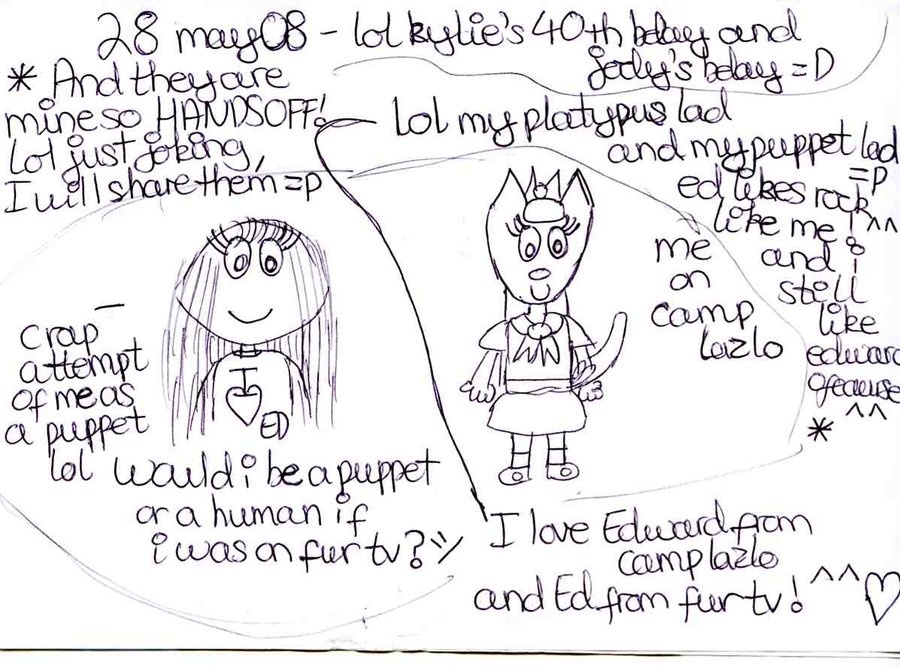 28 may 08 - lol kylie's 40th bday and
jody's bday =D
* And they are
mine so HANDSOFF!
Lol just joking,
I will share them =p
Lol my platypus lad
and my puppet lad
=p
ed likes rock
like me! ^^
and i
still
like
edward
ofcause
^^
*
me
on
camp
lazlo
crap
attempt
of me as
a puppet
lol
I
♡
ED
would i be a puppet
or a human if
i was on fur tv?
I love Edward from
camp lazlo
and Ed from fur tv! ^^ ♡